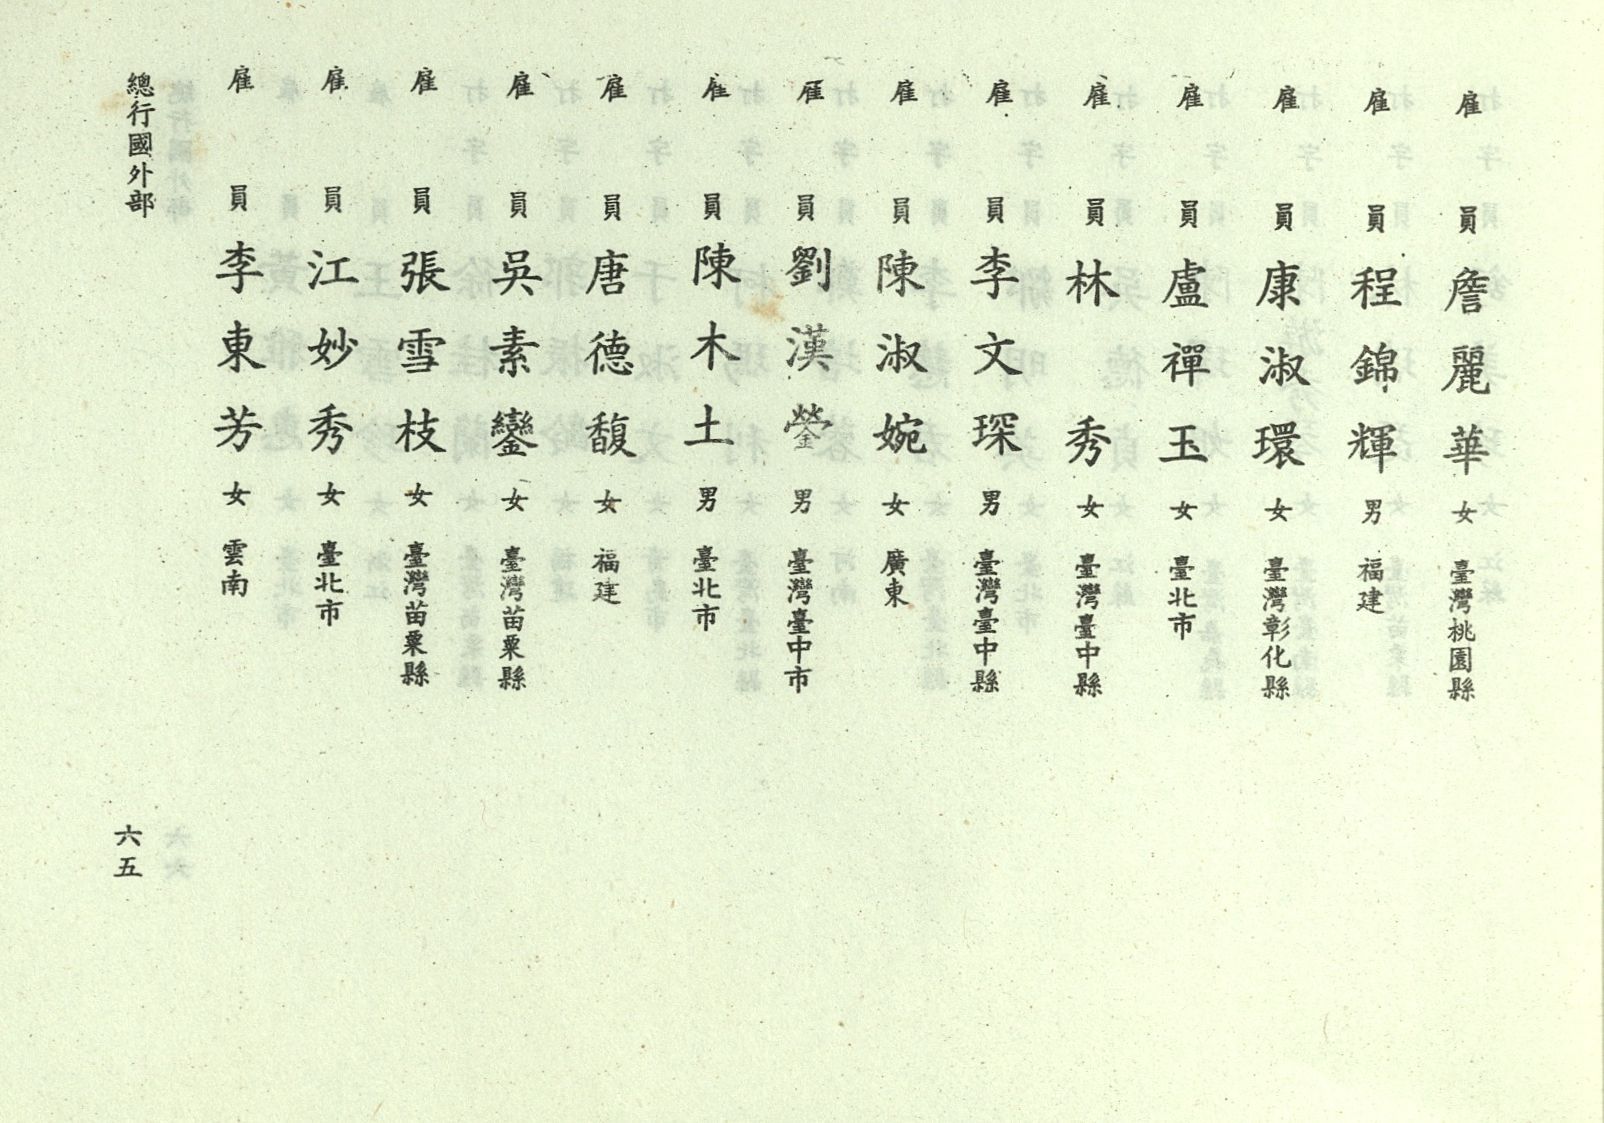 雇員 詹麗華 女 臺灣桃園縣
雇員 程錦輝 男 福建
雇員 康淑環 女 臺灣彰化縣
雇員 盧禪玉 女 臺北市
雇員 林秀 女 臺灣臺中縣
雇員 李文琛 男 臺灣臺中縣
雇員 陳淑婉 女 廣東
雇員 劉漢鎣 男 臺灣臺中市
雇員 陳木土 男 臺北市
雇員 唐德馥 女 福建
雇員 吳素鑾 女 臺灣苗栗縣
雇員 張雪枝 女 臺灣苗栗縣
雇員 江妙秀 女 臺北市
雇員 李東芳 女 雲南
總行國外部 六五